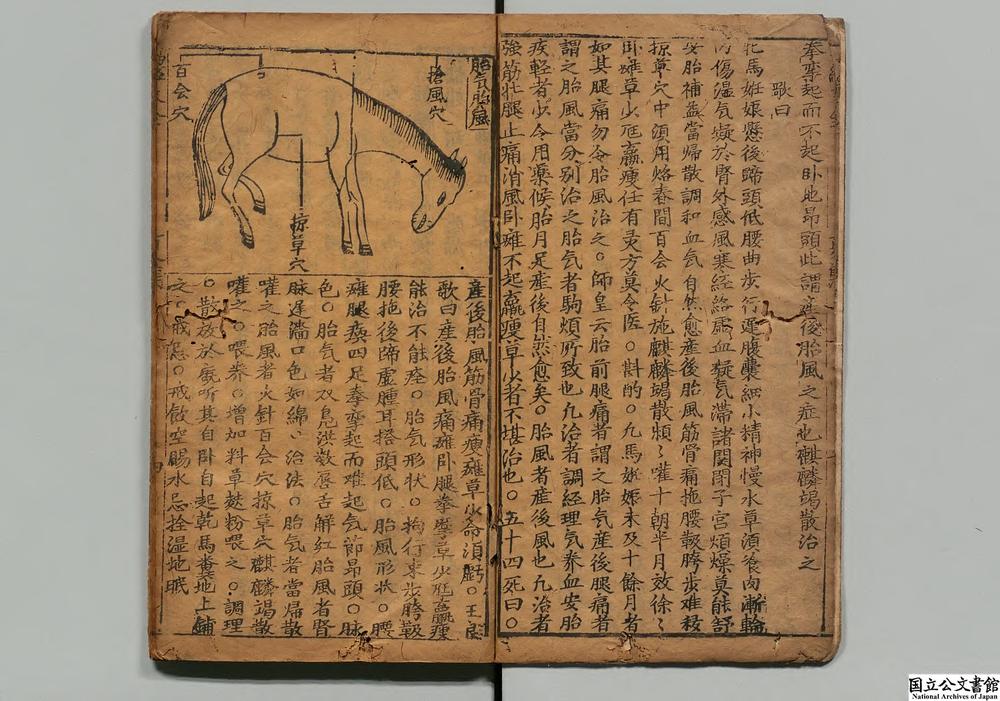 拳挛起而不起卧地昂頭此謂產後胎風之症也麒麟竭散治之
歌曰
牝馬妊娠懸後蹄頭低腰曲步行遲腹囊細小精神慢水草須飡肉漸輪
內傷温气凝於腎外感風寒経絡虧血凝气滯諸関閉子宮煩燥莫能舒
安胎補益當帰散調和血气自然愈產後胎風筋骨痛拖腰靸胯步难移
掠草穴中須用烙春間百会火針施麒麟竭散頻〻嚾十朝半月效徐〻
卧难草少尫羸瘦任有灵方莫令医○斟酌○凢馬妊娠未及十餘月者
如其腿痛勿令胎風治之○師皇云胎前腿痛者謂之胎气產後腿痛者
謂之胎風當分別治之胎气者駒煩所致也凢治者調経理气养血安胎
疾輕者必令用藥候胎月足產後自然愈矣○胎風者產後風也凢治者
強筋壮腿止痛消風卧难不起羸瘦草少者不堪治也○五十四死曰○
胎气胎風
搶風穴
掠草穴
百会穴
產後胎風筋骨痛瘦难草少命須虧○王良
歌曰產後胎風痛难卧腿拳攣草少尫羸瘦
能治不能痊○胎气形状○拘行束步胯靸
腰拖後蹄虛腫耳搭頭低○胎風形状○腰
难腿瘓四足拳挛起而难起气節昂頭○脉
色○胎气者双鳧洪数唇舌鮮紅胎風者腎
脉遲濇口色如綿○治法○胎气者當帰散
嚾之胎風者火針百会穴掠草穴麒麟竭散
嚾之○喂养○增加料草麩粉喂之○調理
○散放於廐听其自卧自起乾馬糞地上鋪
之○戒忌○戒飲空腸水忌拴湿地眠
国立公文書館
National Archives of Japan